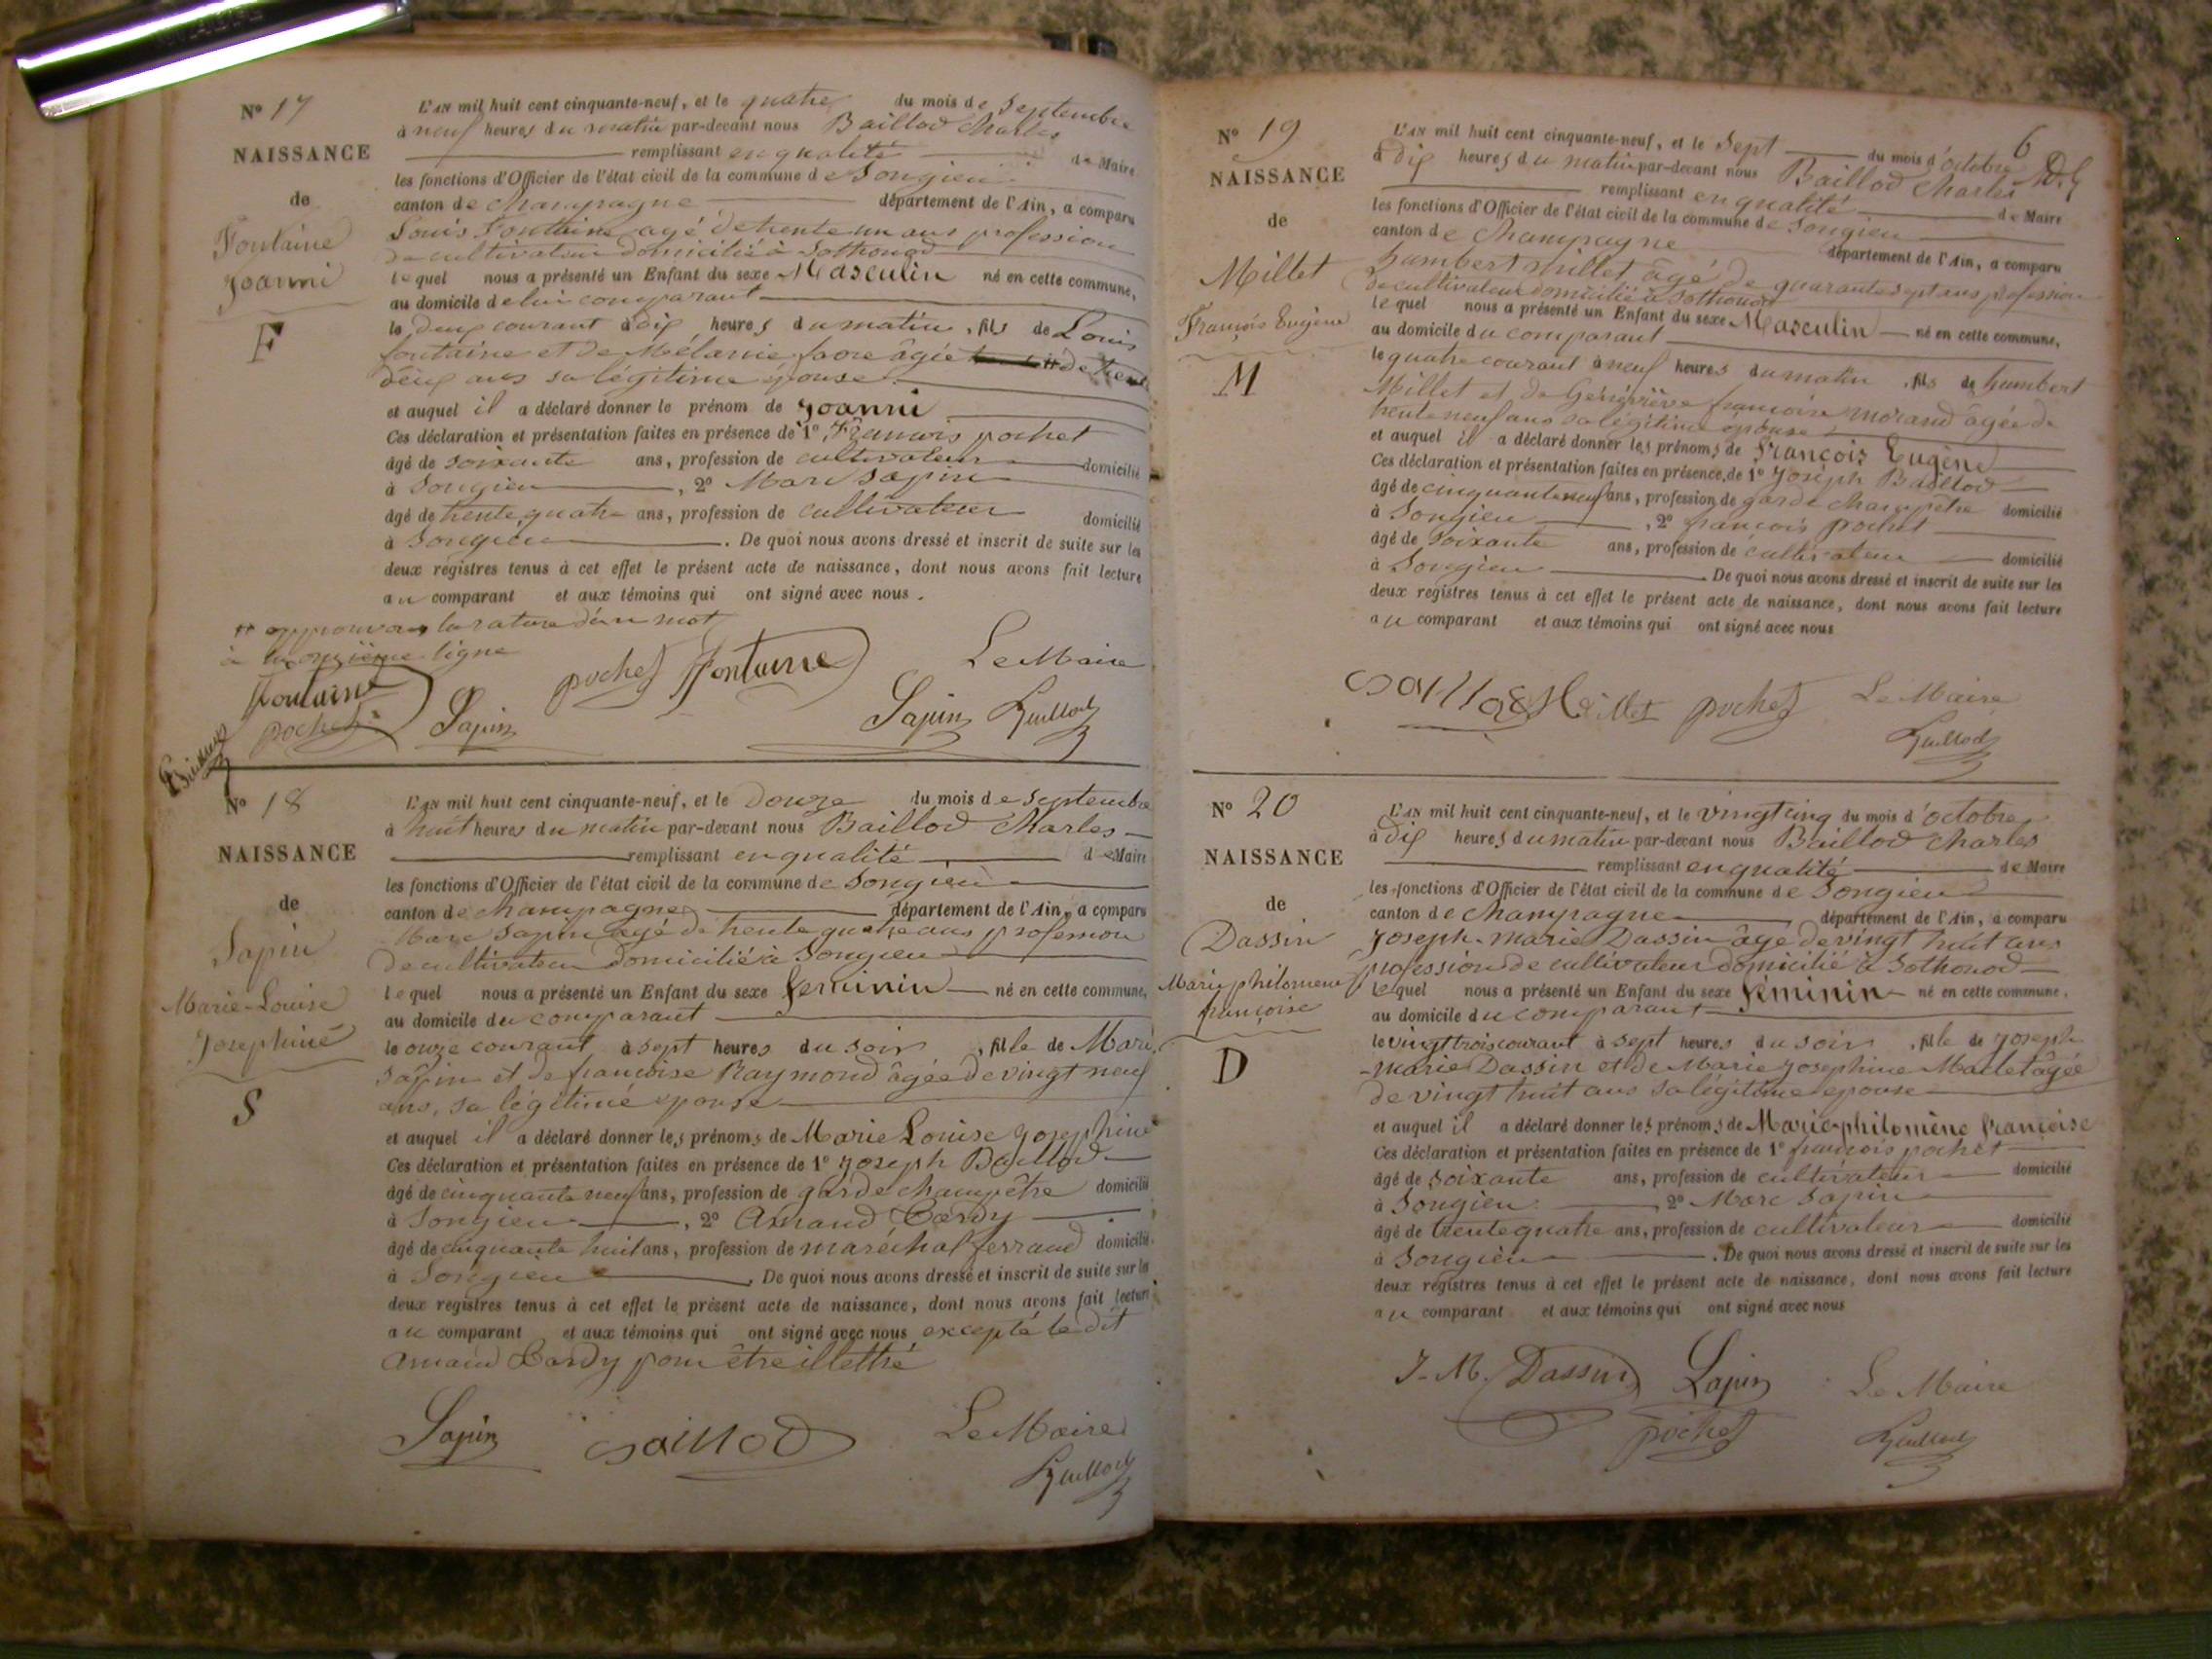 N° 17
NAISSANCE
de
Fontaine
Joanni
F
L'AN mil huit cent cinquante-neuf, et le quatre du mois de Septembre
à neuf heures du matin par-devant nous Baillod Charles
remplissant en qualité de Maire
les fonctions d'Officier de l'état civil de la commune de Songieu
canton de Champagne département de l'Ain, a comparu
Louis Fontaine agé de trente un ans profession
de cultivateur domicilié à Sothonod
lequel nous a présenté un Enfant du sexe Masculin né en cette commune,
au domicile de lui comparant
le deux courant à dix heures du matin, fils de Louis
fontaine et de Mélanie favre âgée de trente
deux ans sa légitime épouse
et auquel il a déclaré donner le prénom de Joanni
Ces déclaration et présentation faites en présence de 1° François pochet
âgé de soixante ans, profession de cultivateur domicilié
à Songieu, 2° Marc Sapin
âgé de trente quatre ans, profession de cultivateur domicilié
à Songieu. De quoi nous avons dressé et inscrit de suite sur les
deux registres tenus à cet effet le présent acte de naissance, dont nous avons fait lecture
au comparant et aux témoins qui ont signé avec nous.
approuvons la rature d'un mot
à la onzième ligne
Le Maire
fontaine pochet Fontaine
pochet Sapin Sapin Baillod
Baillod
N° 18
NAISSANCE
de
Sapin
Marie-Louise
Josephine
S
L'AN mil huit cent cinquante-neuf, et le Douze du mois de Septembre
à huit heures du matin par-devant nous Baillod Charles
remplissant en qualité de Maire
les fonctions d'Officier de l'état civil de la commune de Songieu
canton de Champagne département de l'Ain, a comparu
Marc Sapin agé de trente quatre ans profession
de cultivateur domicilié à Songieu
lequel nous a présenté un Enfant du sexe feminin né en cette commune,
au domicile du comparant
le onze courant à sept heures du soir, fille de Marc
Sapin et de françoise Raymond âgée de vingt neuf
ans, sa légitime épouse
et auquel il a déclaré donner les prénoms de Marie Louise Josephine
Ces déclaration et présentation faites en présence de 1° Joseph Baillod
âgé de cinquante neuf ans, profession de garde champêtre domicilié
à Songieu, 2° Amand Bardy
âgé de cinquante huit ans, profession de maréchal ferrand domicilié
à Songieu. De quoi nous avons dressé et inscrit de suite sur les
deux registres tenus à cet effet le présent acte de naissance, dont nous avons fait lecture
au comparant et aux témoins qui ont signé avec nous excepté le dit
Amand Bardy pour être illettré
Sapin Baillod Le Maire
Baillod
6
N° 19
NAISSANCE
de
Millet
François Eugène
M
L'AN mil huit cent cinquante-neuf, et le Sept du mois d'octobre
à dix heures du matin par-devant nous Baillod Charles
remplissant en qualité de Maire
les fonctions d'Officier de l'état civil de la commune de Songieu
canton de Champagne département de l'Ain, a comparu
humbert Millet âgé de quarante sept ans profession
de cultivateur domicilié à Sothonod
lequel nous a présenté un Enfant du sexe Masculin né en cette commune,
au domicile du comparant
le quatre courant à neuf heures du matin, fils de humbert
Millet et de Généviève françoise morand âgée de
trente neuf ans sa légitime épouse
et auquel il a déclaré donner les prénoms de François Eugène
Ces déclaration et présentation faites en présence de 1° Joseph Baillod
âgé de cinquante neuf ans, profession de garde champêtre domicilié
à Songieu, 2° françois pochet
âgé de soixante ans, profession de cultivateur domicilié
à Songieu. De quoi nous avons dressé et inscrit de suite sur les
deux registres tenus à cet effet le présent acte de naissance, dont nous avons fait lecture
au comparant et aux témoins qui ont signé avec nous
Baillod Millet pochet Le Maire
Baillod
N° 20
NAISSANCE
de
Dassin
Marie philomene
françoise
D
L'AN mil huit cent cinquante-neuf, et le vingt cinq du mois d'octobre
à dix heures du matin par-devant nous Baillod Charles
remplissant en qualité de Maire
les fonctions d'Officier de l'état civil de la commune de Songieu
canton de Champagne département de l'Ain, a comparu
Joseph-Marie Dassin âgé de vingt huit ans
profession de cultivateur domicilié à Sothonod
lequel nous a présenté un Enfant du sexe féminin né en cette commune,
au domicile du comparant
le vingt trois courant à sept heures du soir, fille de Joseph
-marie Dassin et de Marie Josephine Martel âgée
de vingt huit ans sa légitime épouse
et auquel il a déclaré donner les prénoms de Marie-philomène Françoise
Ces déclaration et présentation faites en présence de 1° françois pochet
âgé de soixante ans, profession de cultivateur domicilié
à Songieu, 2° Marc Sapin
âgé de trente quatre ans, profession de cultivateur domicilié
à Songieu. De quoi nous avons dressé et inscrit de suite sur les
deux registres tenus à cet effet le présent acte de naissance, dont nous avons fait lecture
au comparant et aux témoins qui ont signé avec nous
J-M. Dassin Sapin Le Maire
pochet Baillod